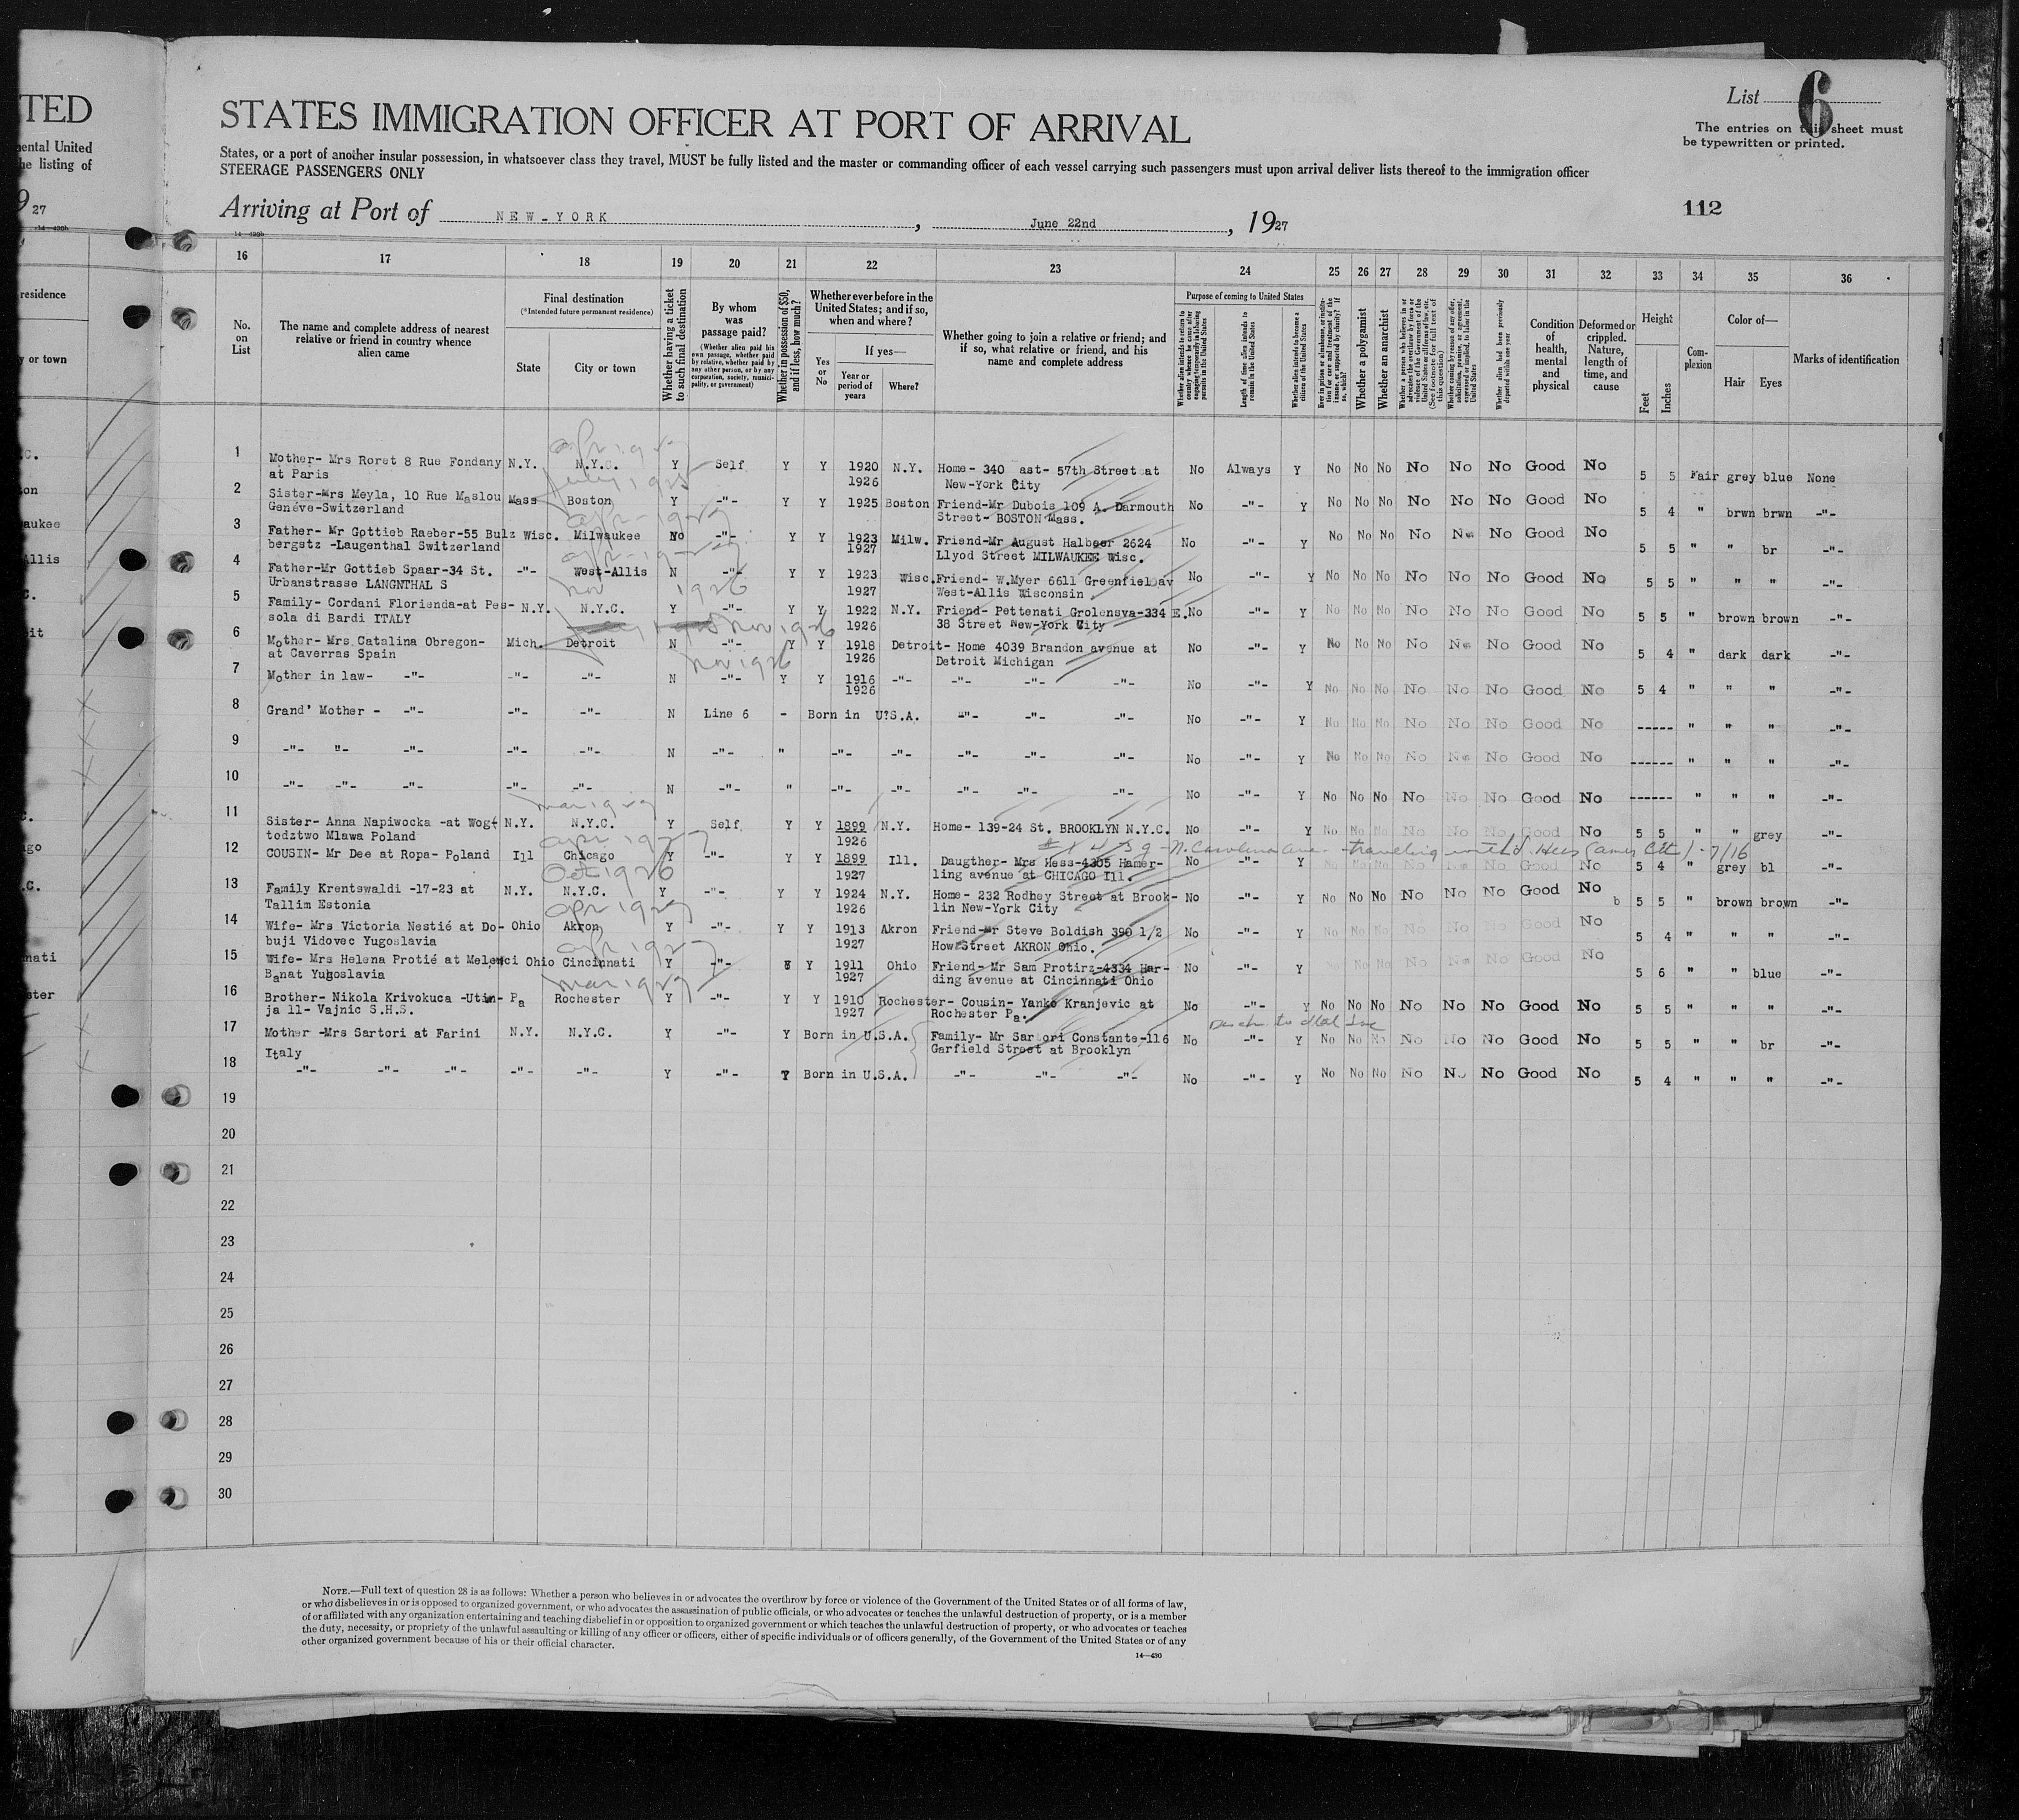 TED
STATES IMMIGRATION OFFICER AT PORT OF ARRIVAL
List 6
The entries on this sheet must
be typewritten or printed.
mental United
he listing of
States, or a port of another insular possession, in whatsoever class they travel, MUST be fully listed and the master or commanding officer of each vessel carrying such passengers must upon arrival deliver lists thereof to the immigration officer
STEERAGE PASSENGERS ONLY
9 27
Arriving at Port of NEW-YORK, June 22nd, 1927
112
14-430b
16 17 18 19 20 21 22 23 24 25 26 27 28 29 30 31 32 33 34 35 36
residence
y or town
No. on List
The name and complete address of nearest relative or friend in country whence alien came
Final destination
(*Intended future permanent residence)
State
City or town
Whether having a ticket to such final destination
By whom was passage paid?
(Whether alien paid his own passage, whether paid by relative, whether paid by any other person, or by any corporation, society, municipality, or government)
Whether in possession of $50, and if less, how much?
Whether ever before in the United States; and if so, when and where?
Yes or No
If yes—
Year or period of years
Where?
Whether going to join a relative or friend; and if so, what relative or friend, and his name and complete address
Purpose of coming to United States
Length of time alien intends to remain in the United States
Whether alien intends to become a citizen of the United States
Whether a polygamist
Whether an anarchist
Condition of health, mental and physical
Deformed or crippled. Nature, length of time, and cause
Height
Feet
Inches
Complexion
Color of—
Hair
Eyes
Marks of identification
1 Mother- Mrs Roret 8 Rue Fondany N.Y. N.Y.C. Y Self Y Y 1920 N.Y. Home- 340 ast- 57th Street at No Always Y No No No No No No Good No 5 5 Fair grey blue None
at Paris 1926 New-York City
2 Sister-Mrs Meyla, 10 Rue Maslou Mass Boston Y -"- Y Y 1925 Boston Friend-Mr Dubois 109 A. Darmouth No -"- Y No No No No No No Good No 5 4 " brwn brwn -"-
Genéve-Switzerland Street- BOSTON Mass.
3 Father- Mr Gottieb Raeber-55 Bulz Wisc. Milwaukee No -"- Y Y 1923 Milw. Friend-Mr August Halboer 2624 No -"- Y No No No No No No Good No 5 5 " " br -"-
bergstz -Laugenthal Switzerland 1927 Llyod Street MILWAUKEE Wisc.
4 Father-Mr Gottieb Spaar-34 St. -"- West-Allis N -"- Y Y 1923 Wisc. Friend- W.Myer 6611 Greenfield av No -"- Y No No No No No No Good No 5 5 " " " -"-
Urbanstrasse LANGNTHAL S 1927 West-Allis Wisconsin
5 Family- Cordani Florienda-at Pes- N.Y. N.Y.C. Y -"- Y Y 1922 N.Y. Friend- Pettenati Grolensva-334 E. No -"- Y No No No No No No Good No 5 5 " brown brown -"-
sola di Bardi ITALY 1926 38 Street New-York City
6 Mother- Mrs Catalina Obregon- Mich. Detroit N -"- Y Y 1918 Detroit- Home 4039 Brandon avenue at No -"- Y No No No No No No Good No 5 4 " dark dark -"-
at Caverras Spain 1926 Detroit Michigan
7 Mother in law- -"- -"- -"- N -"- Y Y 1916 -"- -"- -"- -"- No -"- Y No No No No No No Good No 5 4 " " " -"-
1926
8 Grand' Mother - -"- -"- -"- N Line 6 - Born in U?S.A. "- -"- -"- No -"- Y No No No No No No Good No ----- " " " -"-
9 -"- "- -"- -"- -"- N -"- " -"- -"- -"- -"- -"- No -"- Y No No No No No No Good No ------ " " " -"-
10 -"- -"- -"- -"- -"- N -"- " -"- -"- -"- -"- -"- No -"- Y No No No No No No Good No ------ " " " -"-
11 Sister- Anna Napiwocka -at Wogt N.Y. N.Y.C. Y Self Y Y 1899 N.Y. Home- 139-24 St. BROOKLYN N.Y.C. No -"- Y No No No No No No Good No 5 5 " " grey -"-
todztwo Mlawa Poland 1926
12 COUSIN- Mr Dee at Ropa- Poland Ill Chicago Y -"- Y Y 1899 Ill. Daugther- Mrs Hess-4305 Hamer- No -"- Y No No No No No No Good No 5 4 " grey bl -"-
1927 ling avenue at CHICAGO Ill.
13 Family Krentswaldi -17-23 at N.Y. N.Y.C. Y -"- Y Y 1924 N.Y. Home- 232 Rodney Street at Brook- No -"- Y No No No No No No Good No b 5 5 " brown brown -"-
Tallim Estonia 1926 lin New-York City
14 Wife- Mrs Victoria Nestié at Do- Ohio Akron Y -"- Y Y 1913 Akron Friend-Mr Steve Boldish 390 1/2 No -"- Y No No No No No No Good No 5 4 " " " -"-
buji Vidovec Yugoslavia 1927 How Street AKRON Ohio.
15 Wife- Mrs Helena Protié at Melenci Ohio Cincinnati Y -"- Y Y 1911 Ohio Friend- Mr Sam Protirz-4334 Har- No -"- Y No No No No No Good No 5 6 " " blue -"-
Banat Yugoslavia 1927 ding avenue at Cincinnati Ohio
16 Brother- Nikola Krivokuca -Utin- Pa Rochester Y -"- Y Y 1910 Rochester- Cousin- Yanko Kranjevic at No -"- Y No No No No No No Good No 5 5 " " " -"-
ja 11- Vajnic S.H.S. 1927 Rochester Pa.
17 Mother -Mrs Sartori at Farini N.Y. N.Y.C. Y -"- Y Born in U.S.A. Family- Mr Sartori Constante-116 No -"- Y No No No No No No Good No 5 5 " " br -"-
Italy Garfield Street at Brooklyn
18 -"- -"- -"- -"- -"- Y -"- Y Born in U.S.A. -"- -"- -"- No -"- Y No No No No No No Good No 5 4 " " " -"-
19
20
21
22
23
24
25
26
27
28
29
30
NOTE.—Full text of question 28 is as follows: Whether a person who believes in or advocates the overthrow by force or violence of the Government of the United States or of all forms of law,
or who disbelieves in or is opposed to organized government, or who advocates the assassination of public officials, or who advocates or teaches the unlawful destruction of property, or is a member
of or affiliated with any organization entertaining and teaching disbelief in or opposition to organized government or which teaches the unlawful destruction of property, or who advocates or teaches
the duty, necessity, or propriety of the unlawful assaulting or killing of any officer or officers, either of specific individuals or of officers generally, of the Government of the United States or of any
other organized government because of his or their official character.
14-430